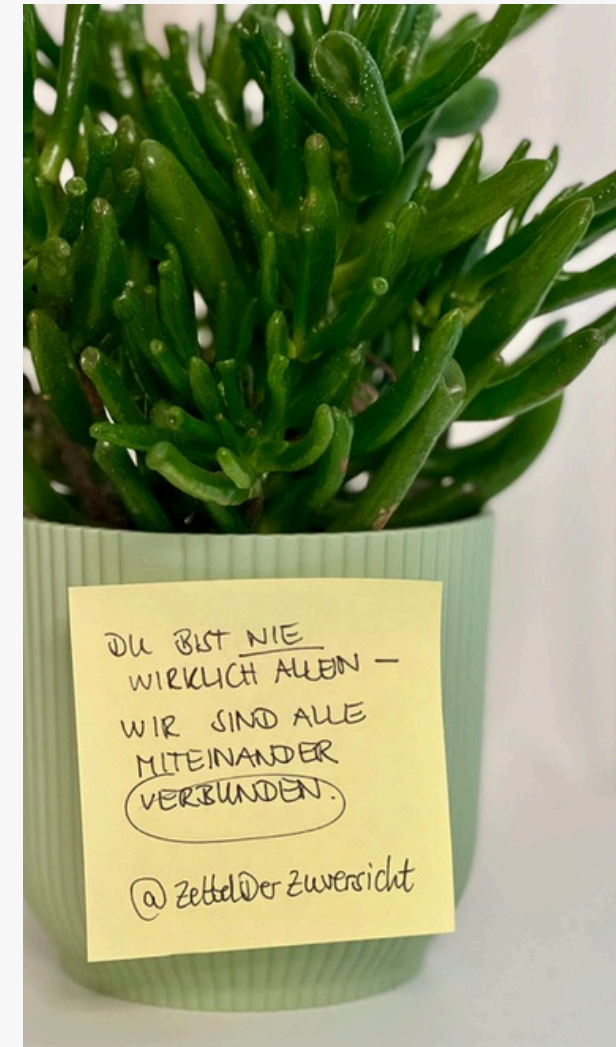 DU BIST NIE
WIRKLICH ALLEIN –
WIR SIND ALLE
MITEINANDER
VERBUNDEN.
@ZettelDerZuversicht